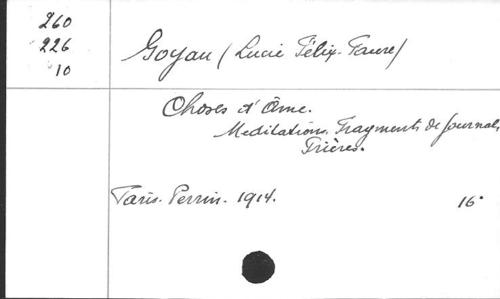 260
226
10
Goyau (Lucie Félix-Faure)
Choses d'Âme.
Meditations, Fragments de Journal,
Prières.
Paris. Perrin. 1914. 16°